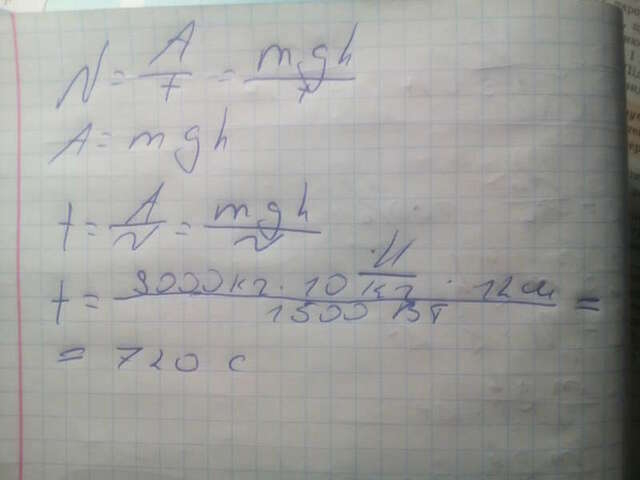 N = A/t = mgh/t
A = mgh
t = A/N = mgh/N
t = 9000кг · 10 Н/кг · 12м / 1500 Вт =
= 720 с